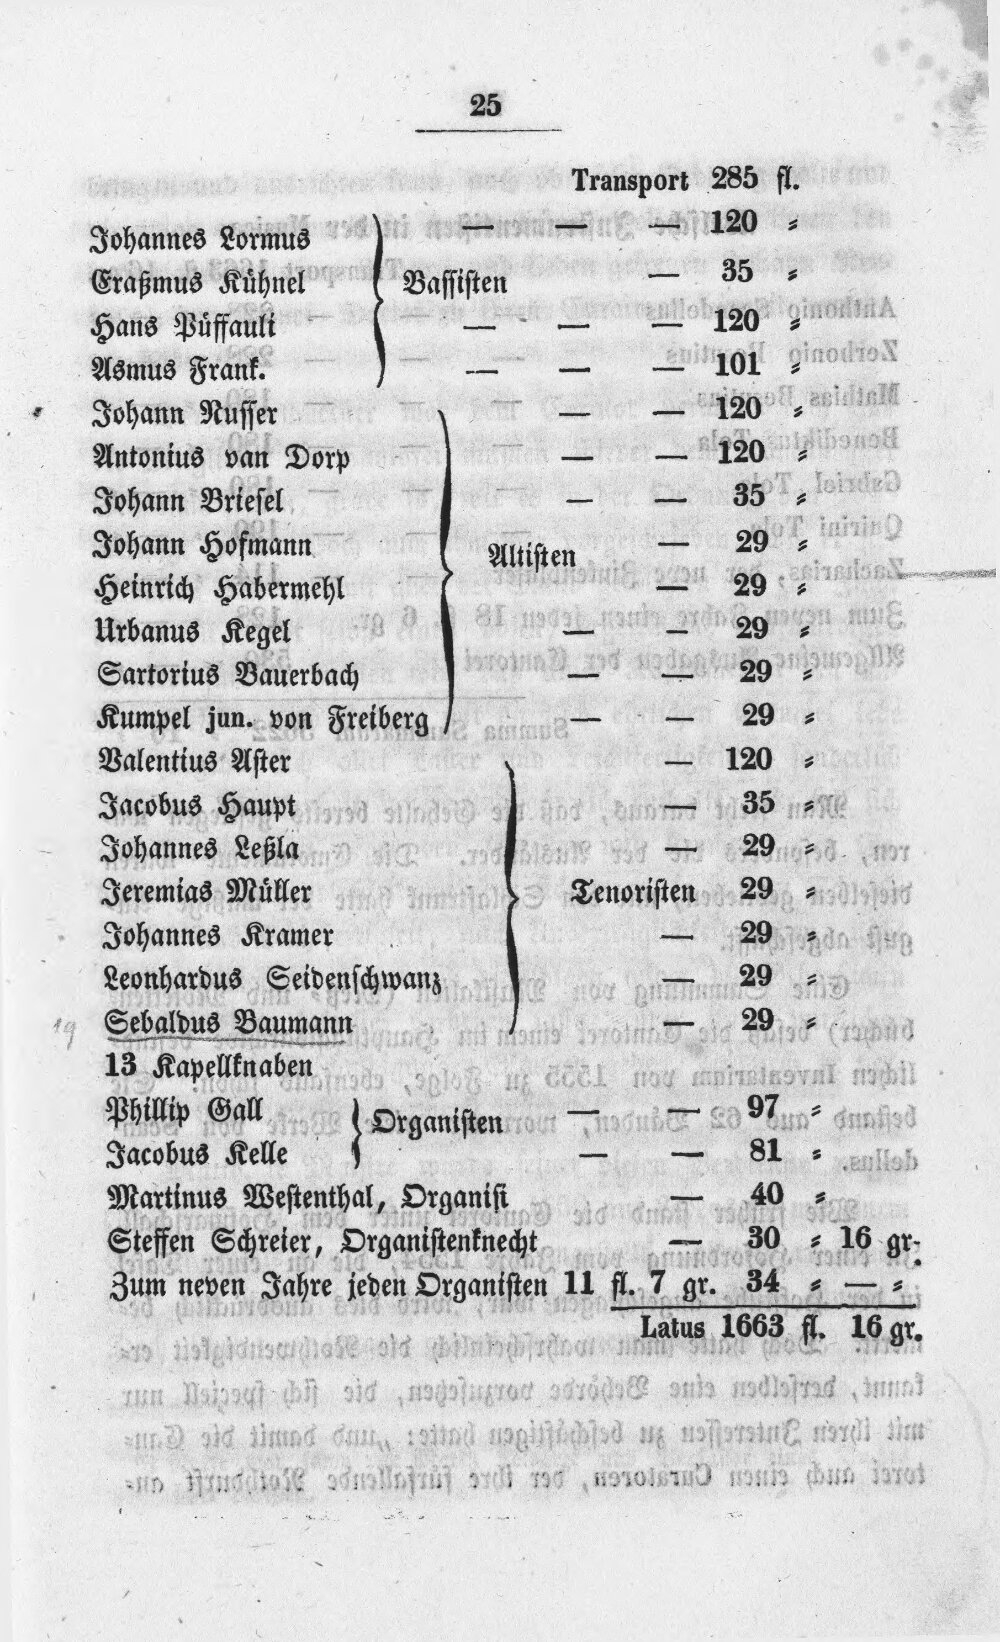 25
Transport 285 fl.
Johannes Lormus — — — 120 „
Eraßmus Kühnel Bassisten — 35 „
Hans Püffault — — — 120 „
Asmus Frank. — — — 101 „
Johann Nusser — — 120 „
Antonius van Dorp — — 120 „
Johann Briesel — — 35 „
Johann Hofmann Altisten — 29 „
Heinrich Habermehl — 29 „
Urbanus Kegel — — 29 „
Sartorius Bauerbach — — 29 „
Kumpel jun. von Freiberg — — 29 „
Valentius Aster 120 „
Jacobus Haupt — 35 „
Johannes Leßla — 29 „
Jeremias Müller Tenoristen 29 „
Johannes Kramer — 29 „
Leonhardus Seidenschwanz — 29 „
19 Sebaldus Baumann — 29 „
13 Kapellknaben
Phillip Gall Organisten — — 97 „
Jacobus Kelle — — 81 „
Martinus Westenthal, Organist — 40 „
Steffen Schreier, Organistenknecht — 30 „ 16 gr.
Zum neven Jahre jeden Organisten 11 fl. 7 gr. 34 „ — „
Latus 1663 fl. 16 gr.